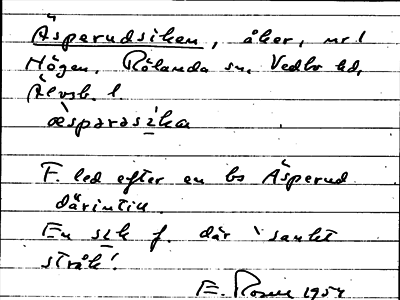 Äsperudsiken, åker, nr 1
Högen, Rölanda sn, Vedbo hd,
Älvsb. l.
æsparasika
F. led efter en bs Äsperud
därintill.
En sik f. där 'sankt
stråk'.
E. 1954